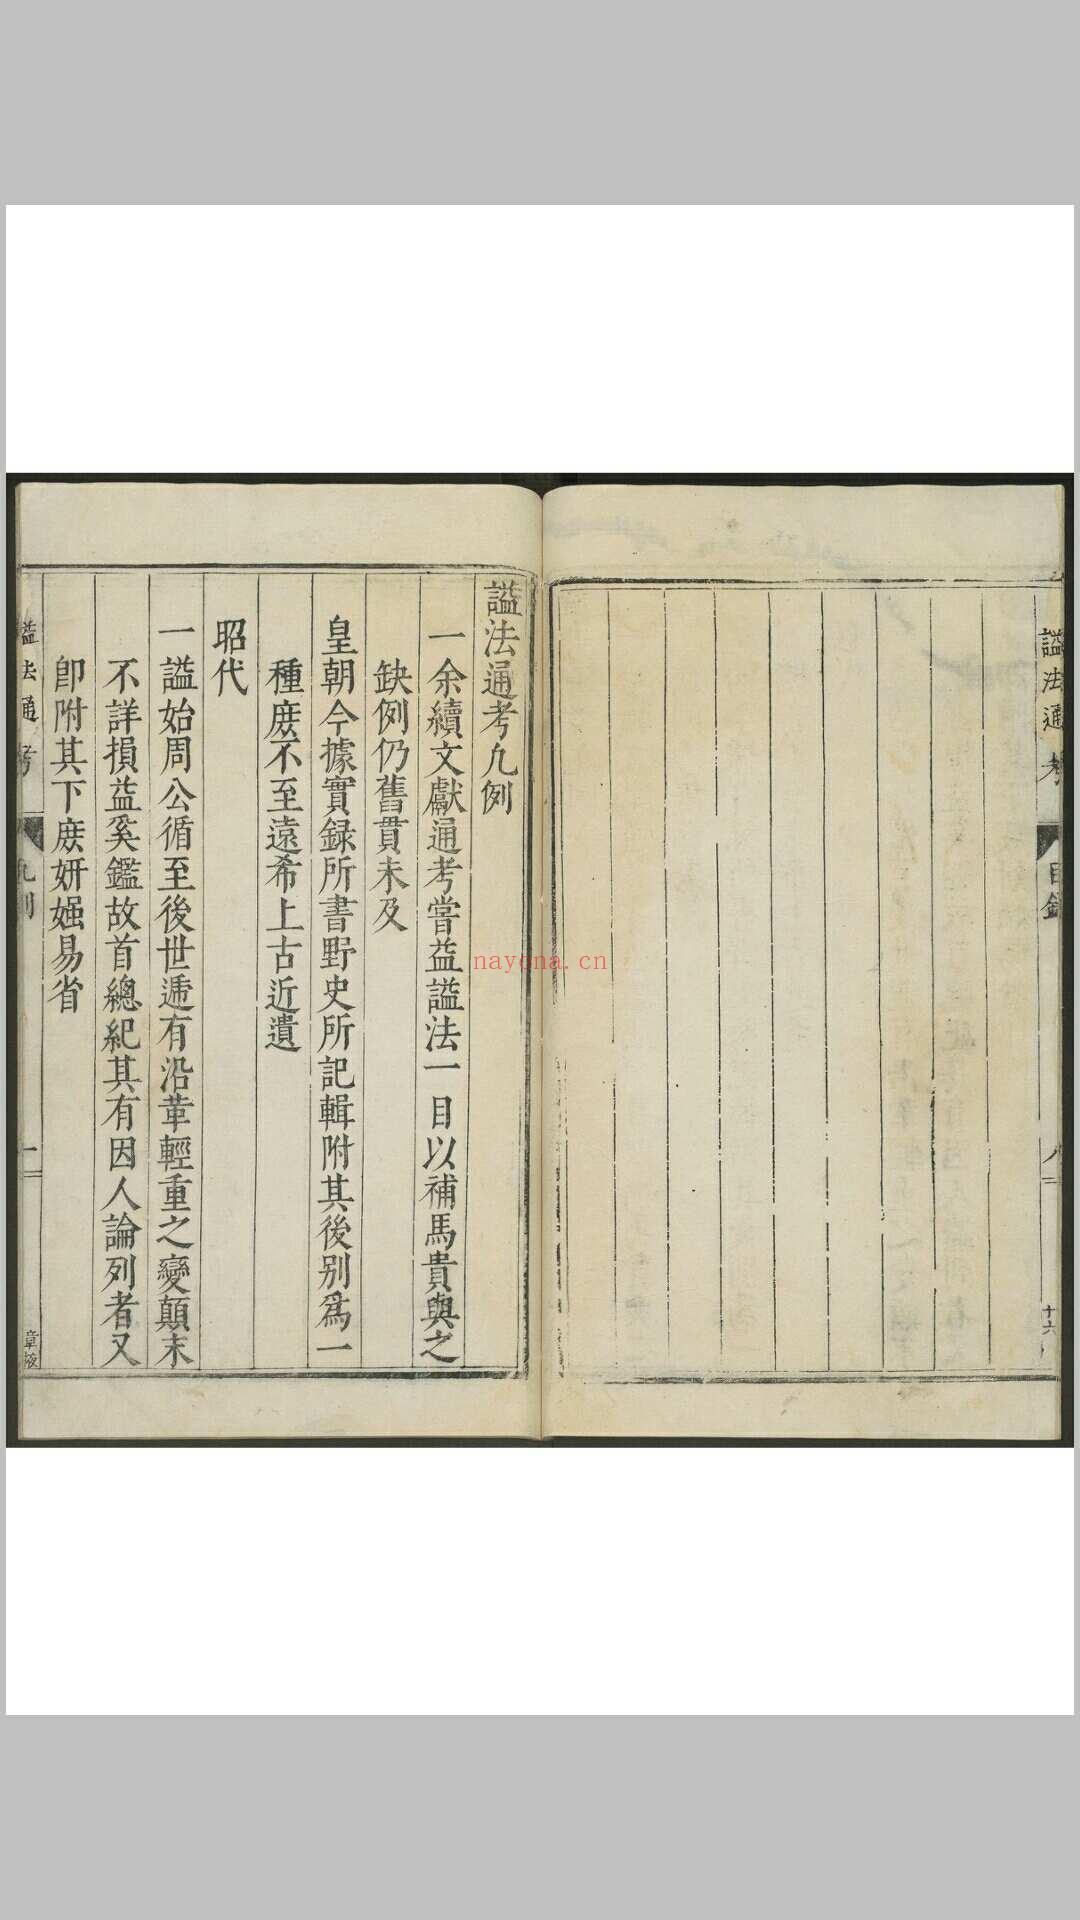 諡法通考
目錄
十六
諡法通考凡例
一余續文獻通考嘗益諡法一目以補馬貴與之
缺例仍舊貫未及
皇朝今據實録所書野史所記輯附其後别爲一
種庻不至遠希上古近遺
昭代
一諡始周公循至後世遞有沿革輕重之變顛末
不詳損益奚鑑故首總紀其有因人論列者又
卽附其下庻妍媸易省
諡法通考
凡例
一
nayona.cn